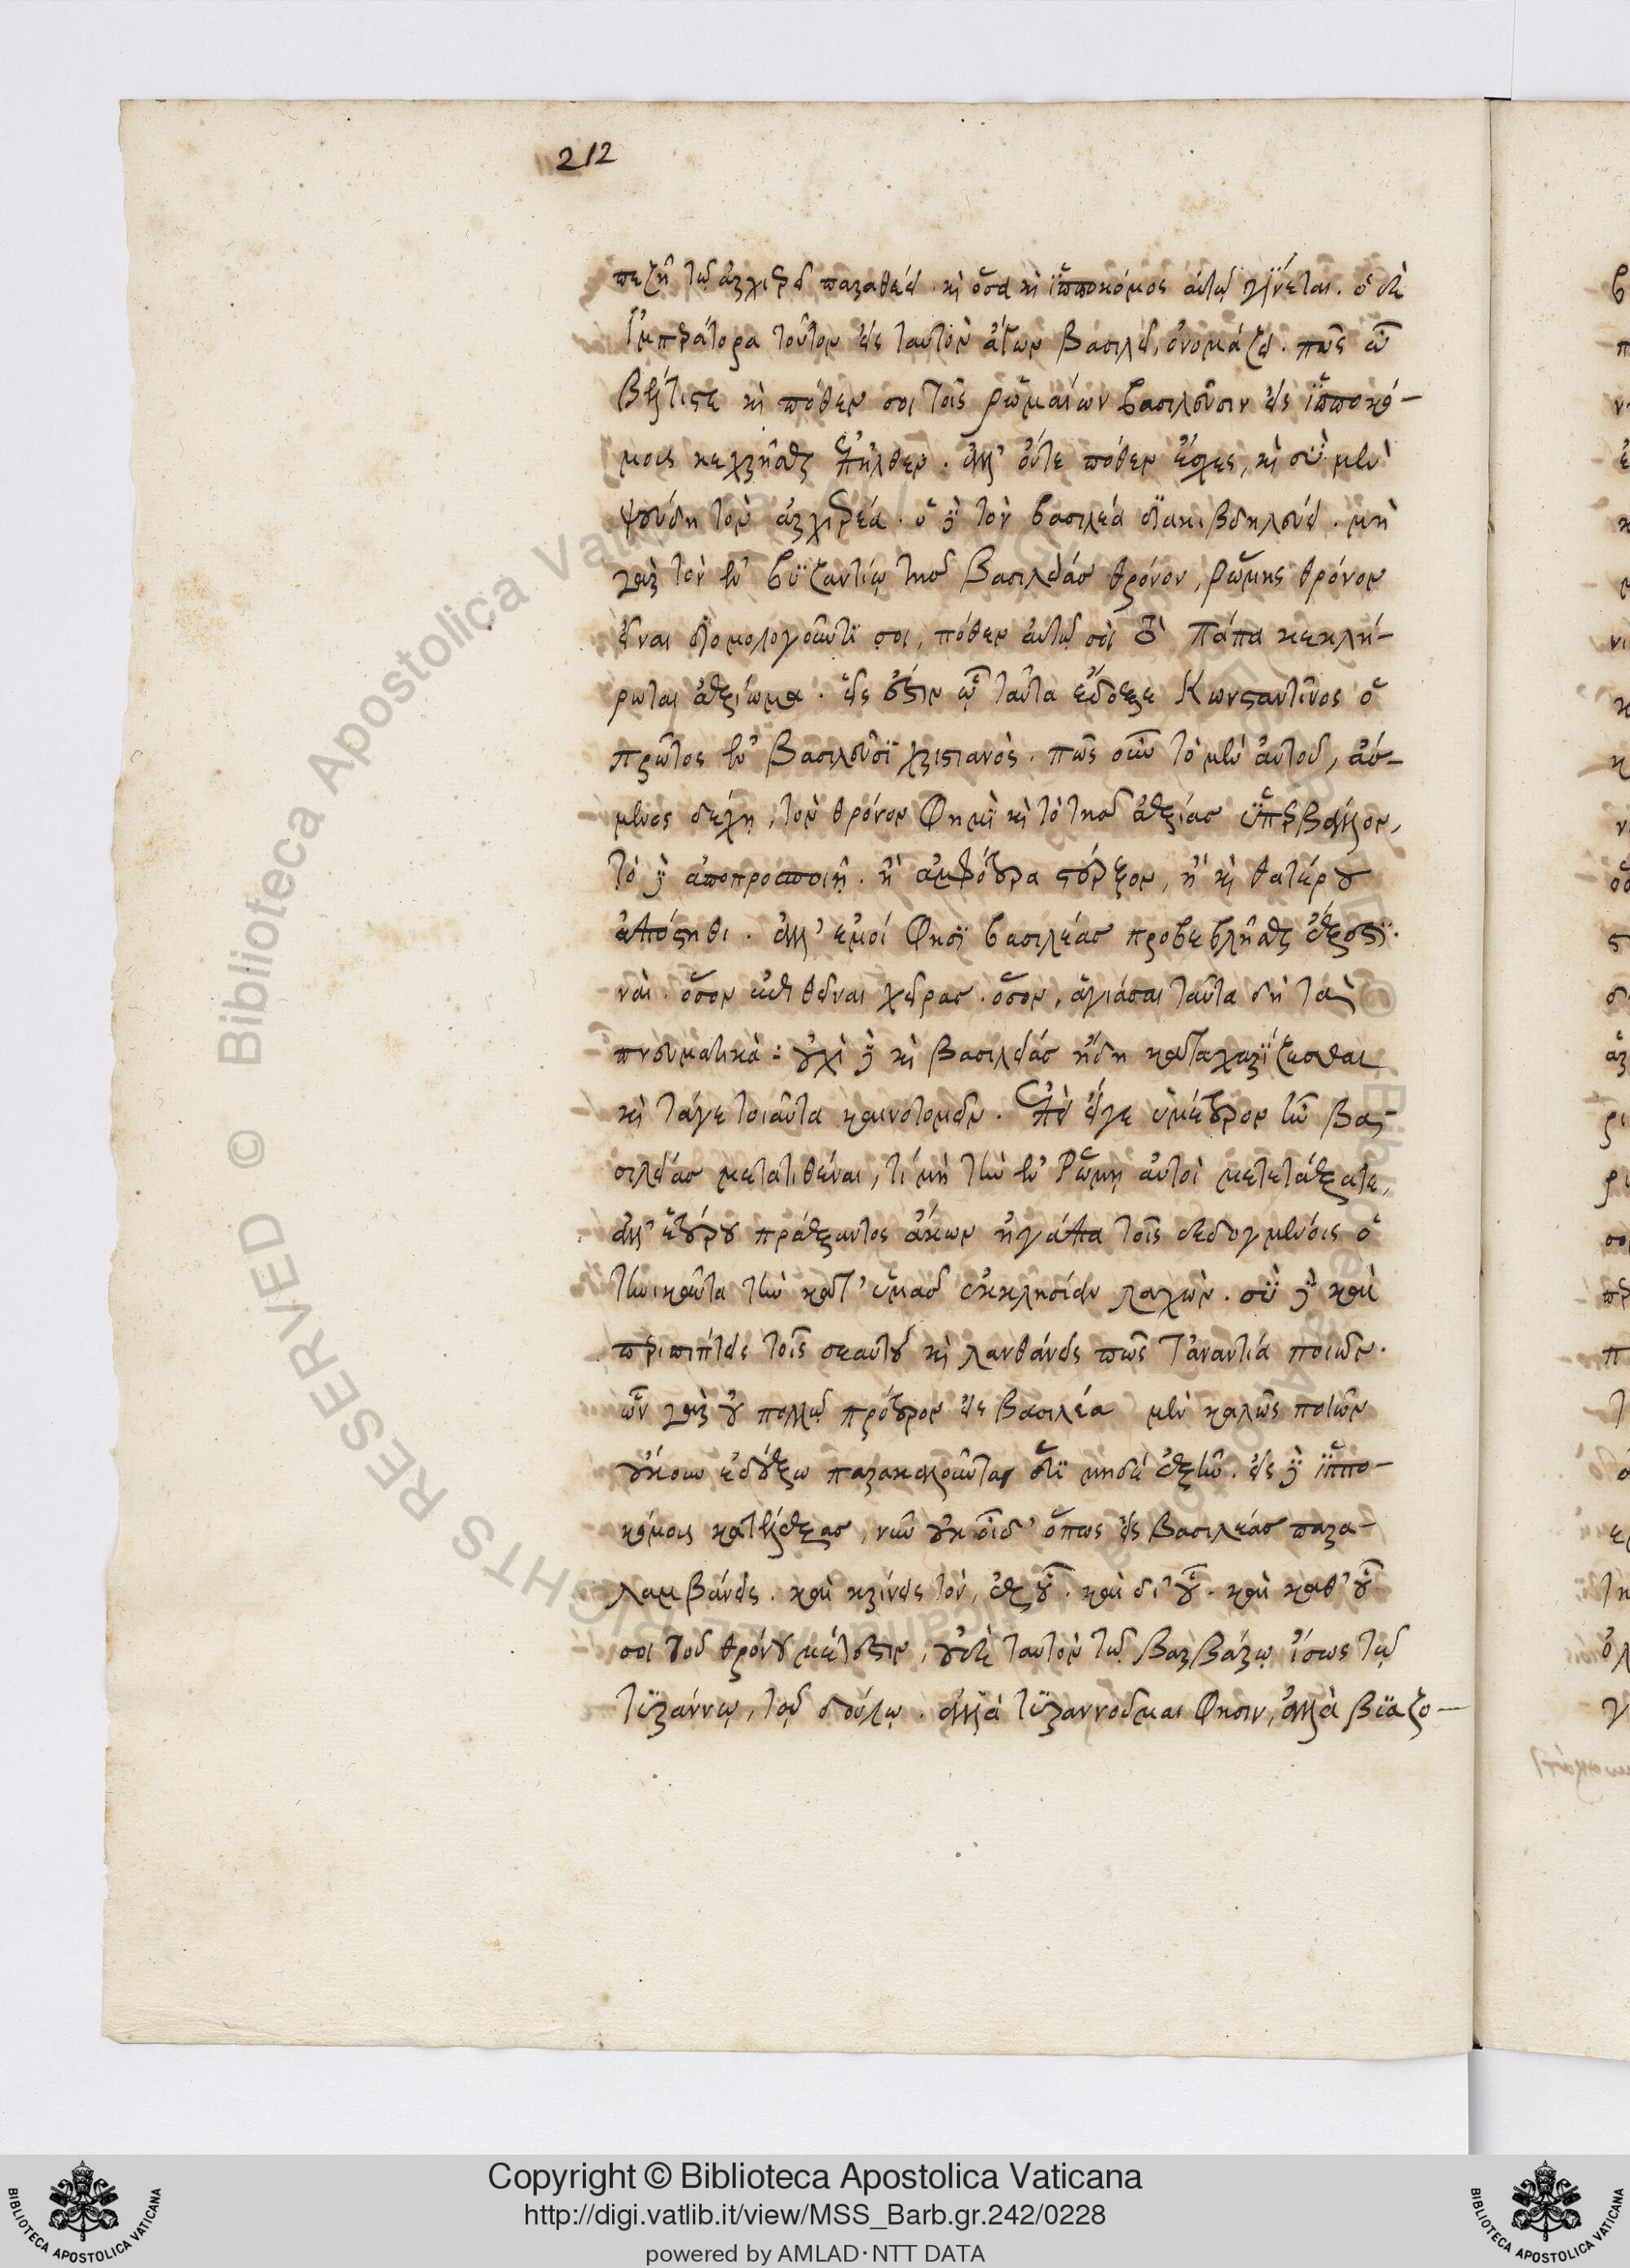 212
πεζῆ τῷ ἀρχιερεῖ παραθέει. καὶ ὅσα καὶ ἱπποκόμος αὐτῷ γίνεται. ὁ δὲ
ἰμπεράτορα τοῦτον εἰς ταυτὸν ἄγων βασιλεῖ, ὀνομάζει. πῶς ὦ
βέλτιστε καὶ πόθεν σοι τοῖς ῥωμαίων βασιλεῦσιν εἰς ἱπποκό-
μοις κεχρῆσθαι ἐπῆλθεν. ἀλλ' οὔτε πόθεν ἔχεις, καὶ σὺ μὲν
ψεύδη τὸν ἀρχιερέα. ὁ δὲ τὸν βασιλέα διακιβδηλεύει. μὴ
γὰρ τὸν ἐν βυζαντίῳ τῆς βασιλείας θρόνον, ῥώμης θρόνον
εἶναι διομολογοῦντί σοι, πόθεν αὐτῷ σοὶ τὸ πάπα κεκλή-
ρωται ἀξίωμα. εἷς ἐστιν ᾧ ταῦτα ἔδοξε Κωνσταντῖνος ὁ
πρῶτος ἐν βασιλεῦσι χριστιανὸς. πῶς οὖν τὸ μὲν αὐτοῦ, ἀσ-
μένως δέχῃ, τὸν θρόνον φημὶ καὶ τὸ τῆς ἀξίας ὑπερβάλλον,
τὸ δὲ ἀποπροσποιῇ. ἢ ἀμφότερα στέρξον, ἢ καὶ θατέρου
ἀπόστηθι. ἀλλ' ἐμοί φησι βασιλέας προβεβλῆσθαι ἔξεστι.
ναὶ. ὅσον ἐπιθεῖναι χεῖρας. ὅσον, ἁγιάσαι ταῦτα δὴ τὰ
πνευματικὰ: οὐχὶ δὲ καὶ βασιλείας ἤδη καταχαρίζεσθαι
καὶ τάγε τοιαῦτα καινοτομεῖν. ἐπεὶ εἴγε ὑμέτερον ἦν βα-
σιλείας μετατιθέναι, τί μὴ τὴν ἐν Ῥώμῃ αὐτοὶ μετετάξατε,
ἀλλ' ἑτέρου πράξαντος ἄκων ἠγάπα τοῖς δεδογμένοις ὁ
τηνικαῦτα τὴν καθ' ὑμᾶς ἐκκλησίαν λαχὼν. σὺ δὲ καὶ
περιπίπτεις τοῖς σεαυτοῦ καὶ λανθάνεις πῶς τἀναντία ποιῶν.
ὧν γὰρ οὐ πολλῷ πρότερον εἰς βασιλέα μὲν καλῶς ποιῶν
οὐκοῦν ἐδόξω παρακαλοῦντας ὅτι μηδὲ ἐξῆν. εἰς δὲ ἱππο-
κόμοις κατέλεξας, νῦν οὐκ οἶδ' ὅπως εἰς βασιλέας παρα-
λαμβάνεις. καὶ κρίνεις τὸν, ἐξ οὗ. καὶ δι' οὗ. καὶ καθ' οὗ
σοι τοῦ θρόνου μέτεστιν, οὐδὲ ταυτὸν τῷ βαρβάρῳ ἴσως τῷ
τυράννῳ, τῷ δούλῳ. ἀλλὰ τυραννοῦμαι φησιν, ἀλλὰ βιάζο-
Copyright © Biblioteca Apostolica Vaticana
http://digi.vatlib.it/view/MSS_Barb.gr.242/0228
powered by AMLAD·NTT DATA